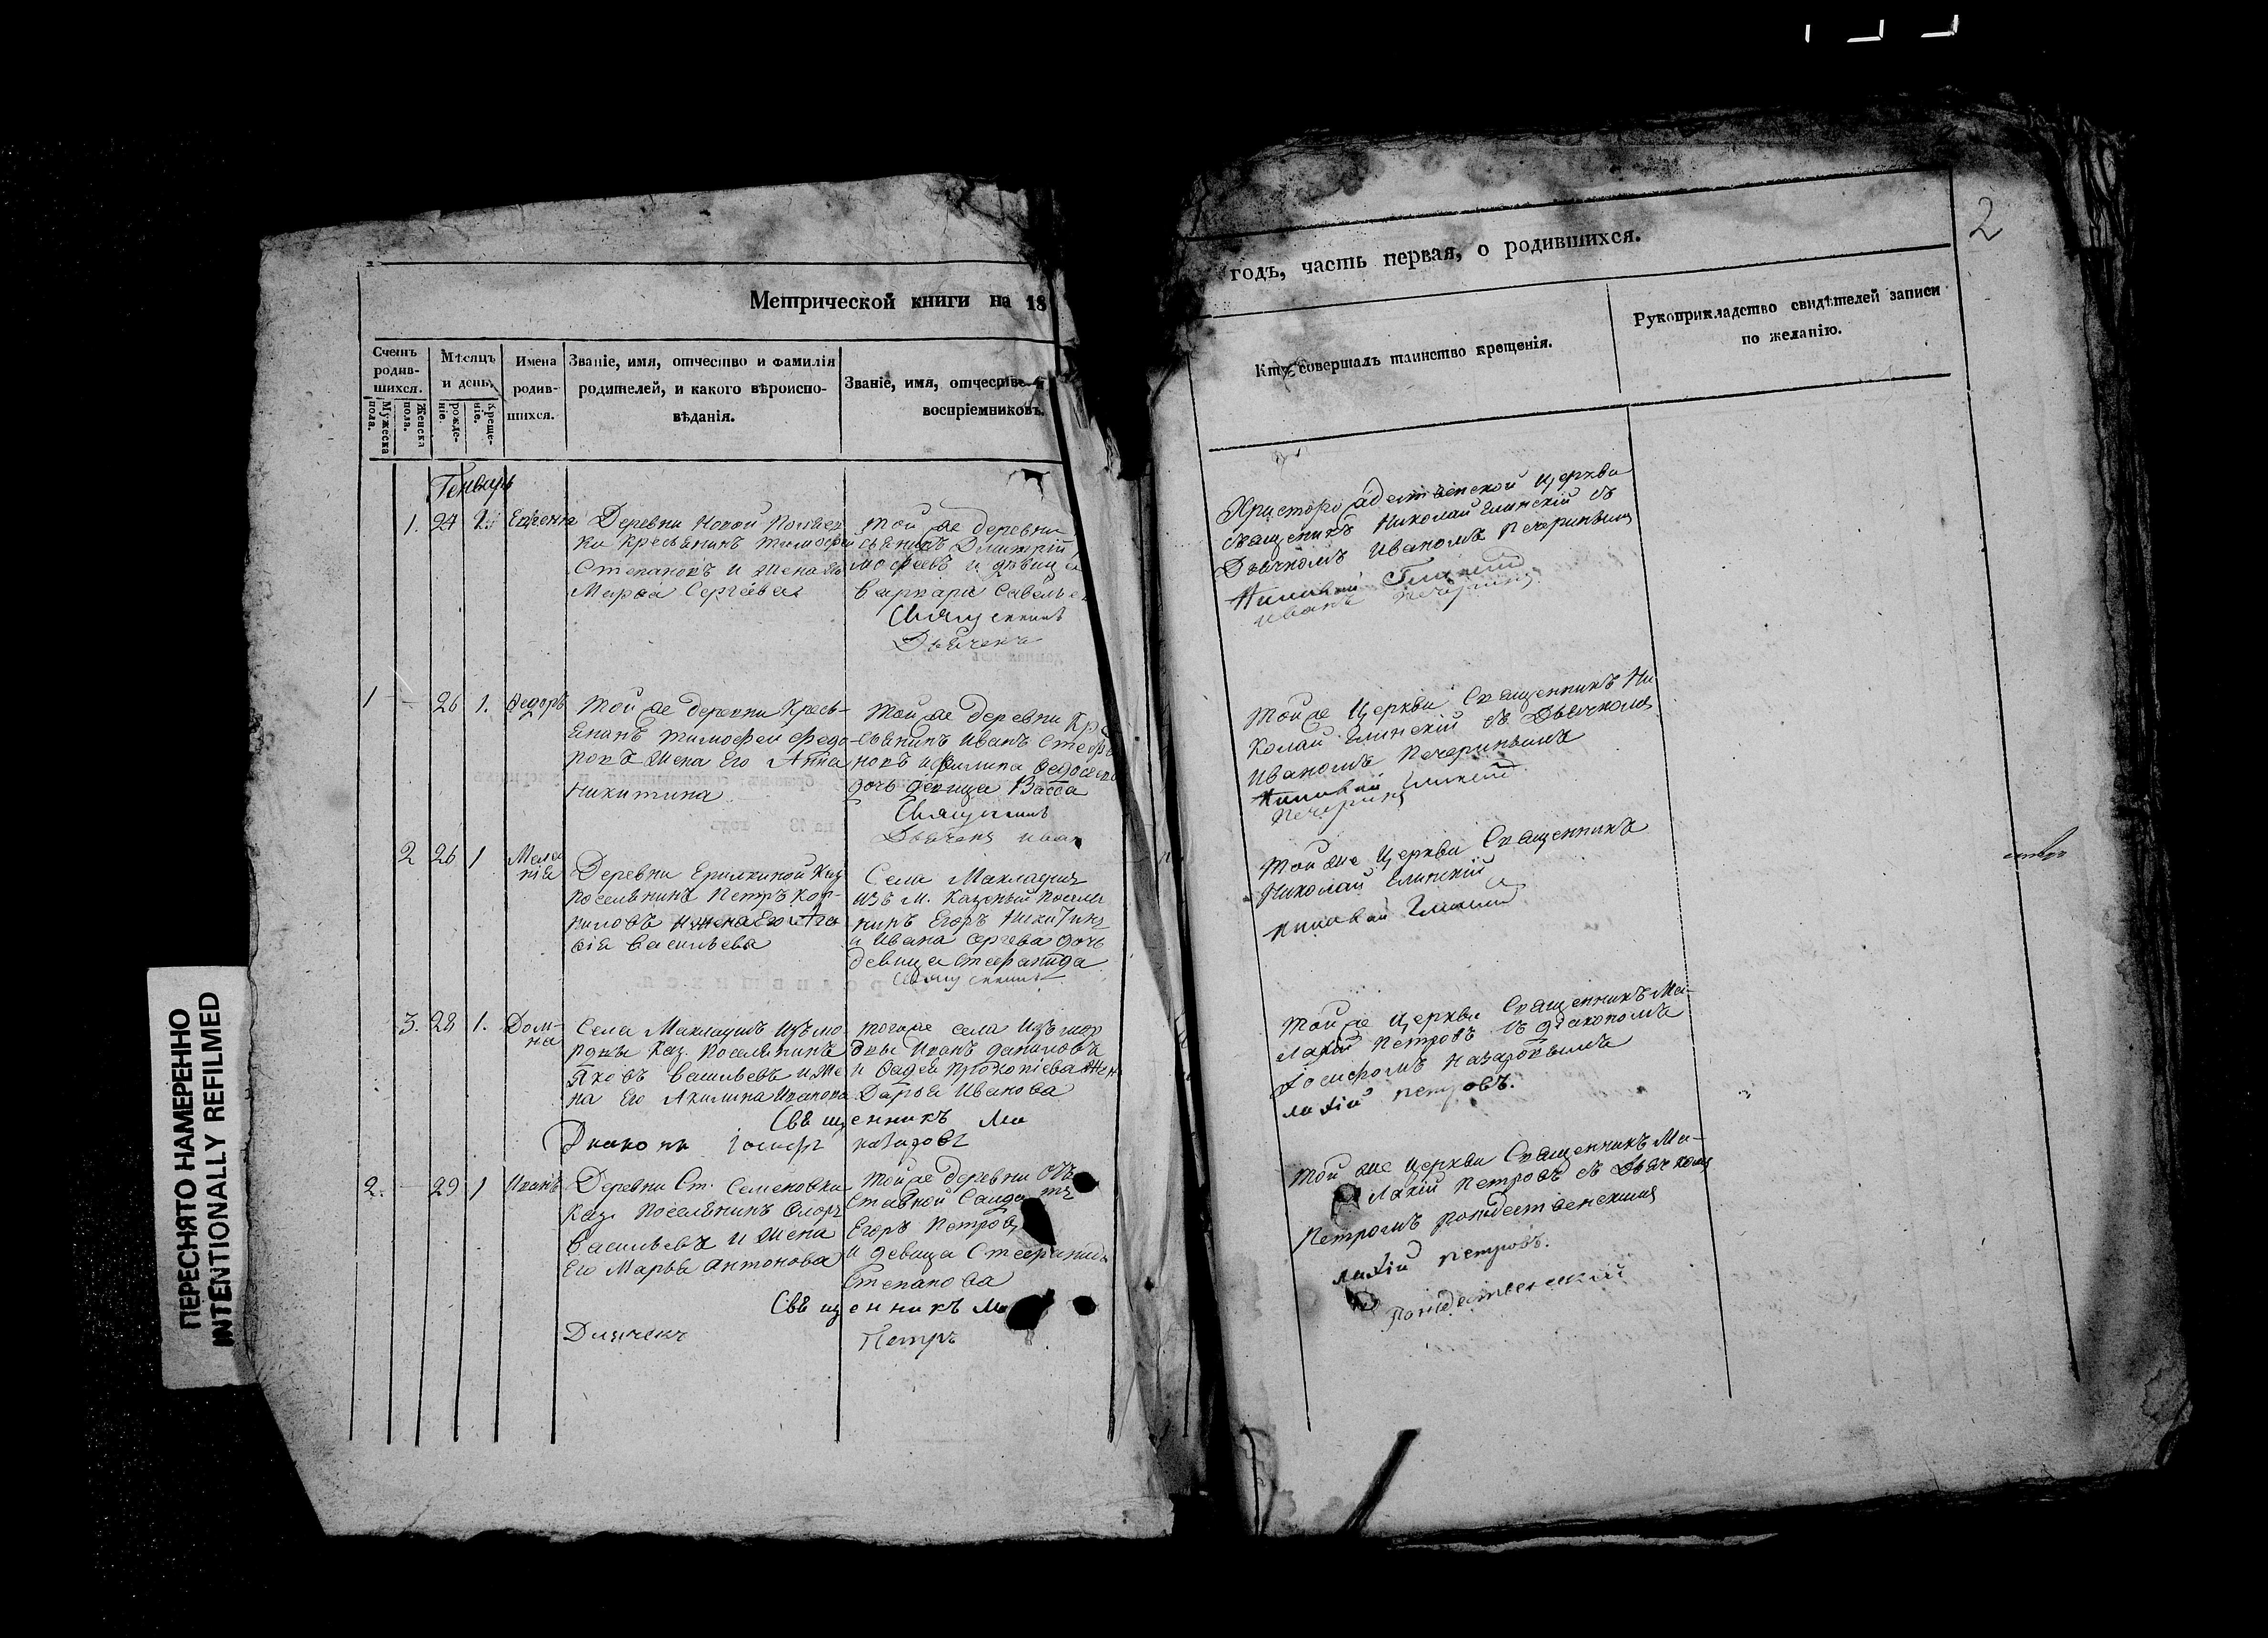 2
Метрической книги на 18
годъ, часть первая, о родившихся.
Счетъ родив-шихся.
Мужеска пола.
Женска пола.
Мѣсяцъ и день.
рожде-ніе.
креще-ніе.
Имена родив-шихся.
Званіе, имя, отчество и фамилія
родителей, и какого вѣроиспо-
вѣданія.
Званіе, имя, отчество
воспріемниковъ.
Кто совершалъ таинство крещенія.
Рукоприкладство свидѣтелей записи
по желанію.
Генварь
1. 24 Евгенія
Деревни Новой
ки Кресьянинъ Тимофей
Степановъ и жена его
Марѳа Сергѣева
Той же деревни
сьянинъ Димитрій
мофеевъ и дѣвица
Варвара Савельев
Священникъ
Дьячекъ
Христорождественской Церкви
священникъ Николай Глинскій съ
Дьячкомъ Иваномъ Печеринымъ
Николай Глинскій
Иванъ Печеринъ
1 - 26 1. Ѳедоръ
Той же деревни Кресь-
янинъ Тимофей Федо-
ровъ Жена Его Анна
Никитина
Той же деревни Кре
сьянинъ Иванъ Стефа
новъ и Филипа Ѳедосеева
дочь девица Васса
Священникъ
Дьячекъ Иван
Той же Церкви Священникъ Ни
колай Глинскій съ Дьячкомъ
Иваномъ Печеринымъ
Николай Глинскій
Печеринъ
2 26 1 Мала
нія
Деревни Ерилкиной Каз
поселянинъ Петръ Кор-
ниловъ и жена Его Ага
ѳія Васильева
Села Маклауша
изъ м. Казенный поселя
нинъ Егоръ Никитинъ
и Ивана Сергева дочь
девица Стефанида
Священникъ
Той же Церкви Священникъ
Николай Глинскій
Николай Глинскій
3. 28 1. Дом-
на
Села Маклаушъ изъ мо
рдвы Каз. поселянинъ
Яковъ Васильевъ и же
на Его Акилина Иванова
тогоже села изъ мор
двы Иванъ Даниловъ
и Ѳадея Прокопіева жен
Дарья Иванова
Священникъ Ма
Диаконъ Іосифъ Назаровъ
Той же Церкви Священникъ Ма-
лахій Петровъ съ діакономъ
Іосифомъ Назаровымъ
лахій Петровъ.
2. - 29 1 Иванъ
Деревни Ст. Семеновки
Каз. поселянинъ Флоръ
Васильевъ и жена
Его Марья Антонова
Тойже деревни От
ставной Салдатъ
Егоръ Петровъ
и девица Стефанида
Степанова
Священникъ Ма
Дьячекъ Петръ
Той же Церкви Священникъ Ма-
лахій Петровъ съ Дьячкомъ
Петромъ Рождественскимъ
лахій Петровъ.
Рождественскій
ПЕРЕСНЯТО НАМЕРЕННО
INTENTIONALLY REFILMED